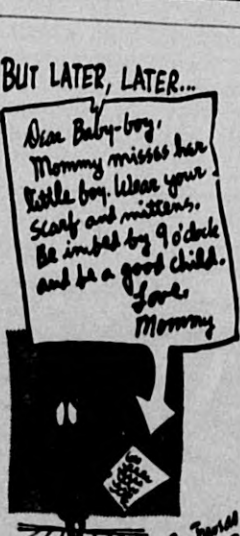 BUT LATER, LATER...
Dear Baby-boy,
Mommy misses her
little boy. Wear your
scarf and mittens.
Be in bed by 9 o'clock
and be a good child.
Love,
Mommy